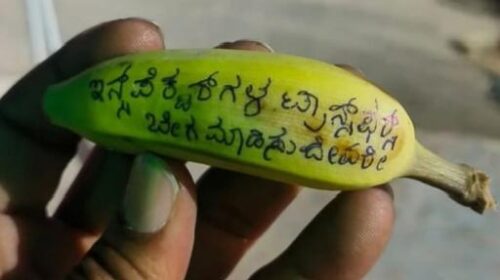 ಇನ್ಸ್‌ಪೆಕ್ಟರ್‌ಗಳ ಟ್ರಾನ್ಸ್‌ಫರ್
ಬೇಗ ಮಾಡಿಸು ದೇವರೇ